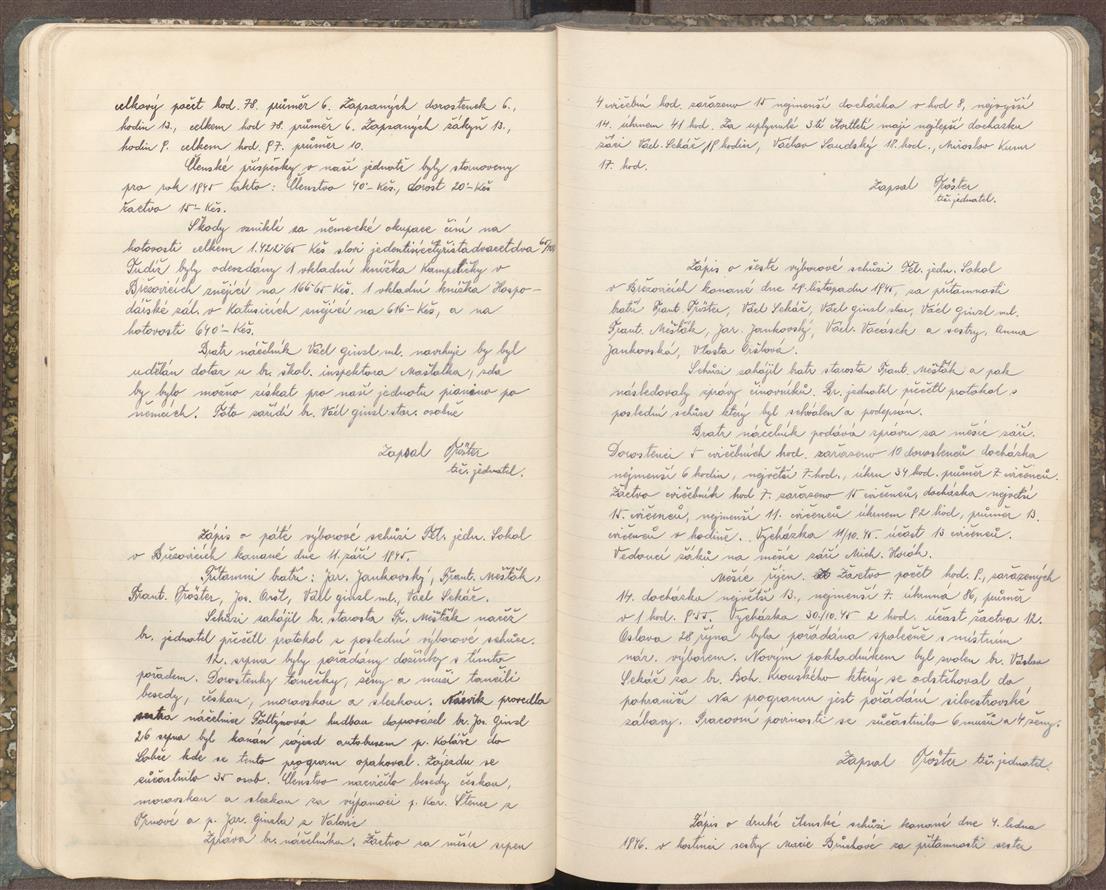 celkový počet hod. 78. průměr 6. Zapsaných dorostenek 6.,
hodin 13., celkem hod 78. průměr 6. Zapsaných žákyň 13.,
hodin 9. celkem hod. 97. průměr 10.
Členské příspěvky v naší jednotě byly stanoveny
pro rok 1945 takto: Členstvo 40·- Kčs., dorost 20·- Kčs
žactvo 15·- Kčs.
Škody vzniklé za německé okupace činí na
hotovosti celkem 1.422·65 Kčs slovy jedentisícčtyřistadvacetdva 65/100
Tudíž byly odevzdány 1 vkladní knížka Kampeličky v
Březovicích znějící na 166·65 Kčs. 1 vkladní knížka Hospo-
dářské zál. v Katusicích znějící na 616·- Kčs, a na
hotovosti 640·- Kčs.
Bratr náčelník Václ ginzl ml. navrhuje by byl
udělán dotaz u br. škol. inspektora Maštalka, zda
by bylo možno získat pro naši jednotu pianino po
němcích. Toto zařídí br. Václ ginzl star. osobně
Zapsal Tröster
t.č. jednatel.
Zápis o páté výborové schůzi Těl. jedn. Sokol
v Březovicích konané dne 11. září 1945.
Přítomni bratři: Jar. Jankovský, Frant. Mešťák,
Frant. Tröster, Jos. Oršl, Václ ginzl ml., Václ Sekáč.
Schůzi zahájil br. starosta Fr. Mešťák načež
br. jednatel přečetl protokol z poslední výborové schůze.
12. srpna byly pořádány dožínky s tímto
pořadem. Dorostenky tanečky, ženy a muži tančili
besedy, českou, moravskou a slezkou. Nácvik provedla
sestra náčelnice Foltýnová hudbou doprovázel br. Jos. Ginzl
26 srpna byl konán zájezd autobusem p. Koláře do
Lobče kde se tento program opakoval. Zájezdu se
zúčastnilo 35 osob. Členstvo nacvičilo besedy českou,
moravskou a slezkou za výpomoci p. Kar. Štence z
a p. Jar. Ginzla z Valovic
Zpráva br. náčelníka. Žactvo za měsíc srpen
4 cvičební hod. zařazeno 15 nejmenší docházka v hod 8, nejvyšší
14. úhrnem 41 hod. Za uplynulé 3tí čtvrtletí mají nejlepší docházku
žáci Václ. Sekáč 19 hodin, Václav Saudský 18. hod., Miroslav
17. hod.
Zapsal Tröster
t.č. jednatel.
Zápis o šesté výborové schůzi Těl. jedn. Sokol
v Březovicích konané dne 29. listopadu 1945, za přítomnosti
bratří Frant. Tröster, Václ Sekáč, Václ ginzl star, Václ ginzl ml.
Frant. Mešťák, Jar. Jankovský, Václ. Vacásek a sestry. Anna
Jankovská, Vlasta Oršlová.
Schůzi zahájil bratr starosta Frant. Mešťák a pak
následovaly zprávy činovníků. Br. jednatel přečetl protokol z
poslední schůze který byl schválen a podepsán.
Bratr náčelník podává zprávu za měsíc září.
Dorostenci 5 cvičebních hod. zařazeno 10 dorostenců docházka
nejmenší 6 hodin, největší 7. hod., úhrn 34 hod. průměr 7 cvičenců.
Žactvo cvičebních hod 7. zařazeno 15 cvičenců, docházka největší
15. cvičenců, nejmenší 11. cvičenců úhrnem 92 hod, průměr 13.
cvičenců v hodině. Vycházka 11/10. 45. účast 13 cvičenců.
Vedoucí žáků na měsíc září Mich. Horák.
Měsíc říjen. Žactvo počet hod. 9., zařazených
14. docházka největší 13., nejmenší 7. úhrnná 86, průměr
v 1 hod. 9·55. Vycházka 30/10. 45 2 hod, účast žactva 12.
Oslava 28 října byla pořádána společně s místním
nár. výborem. Novým pokladníkem byl zvolen br. Václav
Sekáč za br. Boh. Krouského který se odstěhoval do
pohraničí. Na programu jest pořádání silvestrovské
zábavy. Pracovní povinosti se zúčastnilo 6 mužů a 4 ženy.
Zapsal Tröster t.č. jednatel.
Zápis o druhé členské schůzi konané dne 4. ledna
1946. v hostinci sestry Marie za přítomnosti sester